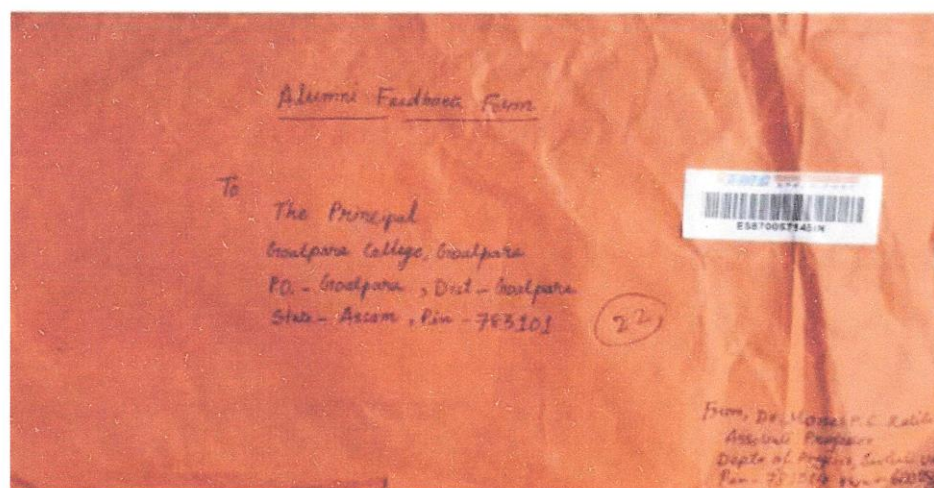 Alumni Feedback Form
To
The Principal
Goalpara College, Goalpara
P.O. - Goalpara, Dist - Goalpara
State - Assam, Pin - 783101
22
From, Dr.
Associate Professor
Deptt of
Pin -